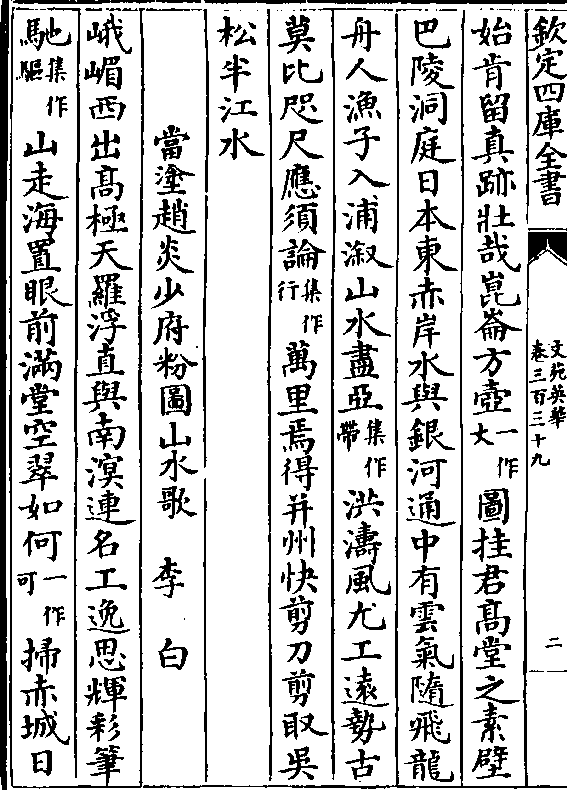 欽定四庫全書
文苑英華
卷三百三十九
二
始肯留真跡壯哉崑崙方壺一作丈圖挂君高堂之素壁
巴陵洞庭日本東赤岸水與銀河通中有雲氣隨飛龍
舟人漁子入浦溆山水盡亞集作帶洪濤風尤工遠勢古
莫比咫尺應須論集作行萬里焉得并州快剪刀剪取吳
松半江水
當塗趙炎少府粉圖山水歌 李白
峨嵋西出高極天羅浮直與南溟連名工逸思輝彩筆
馳集作驅山走海置眼前滿堂空翠如何一作可掃赤城日